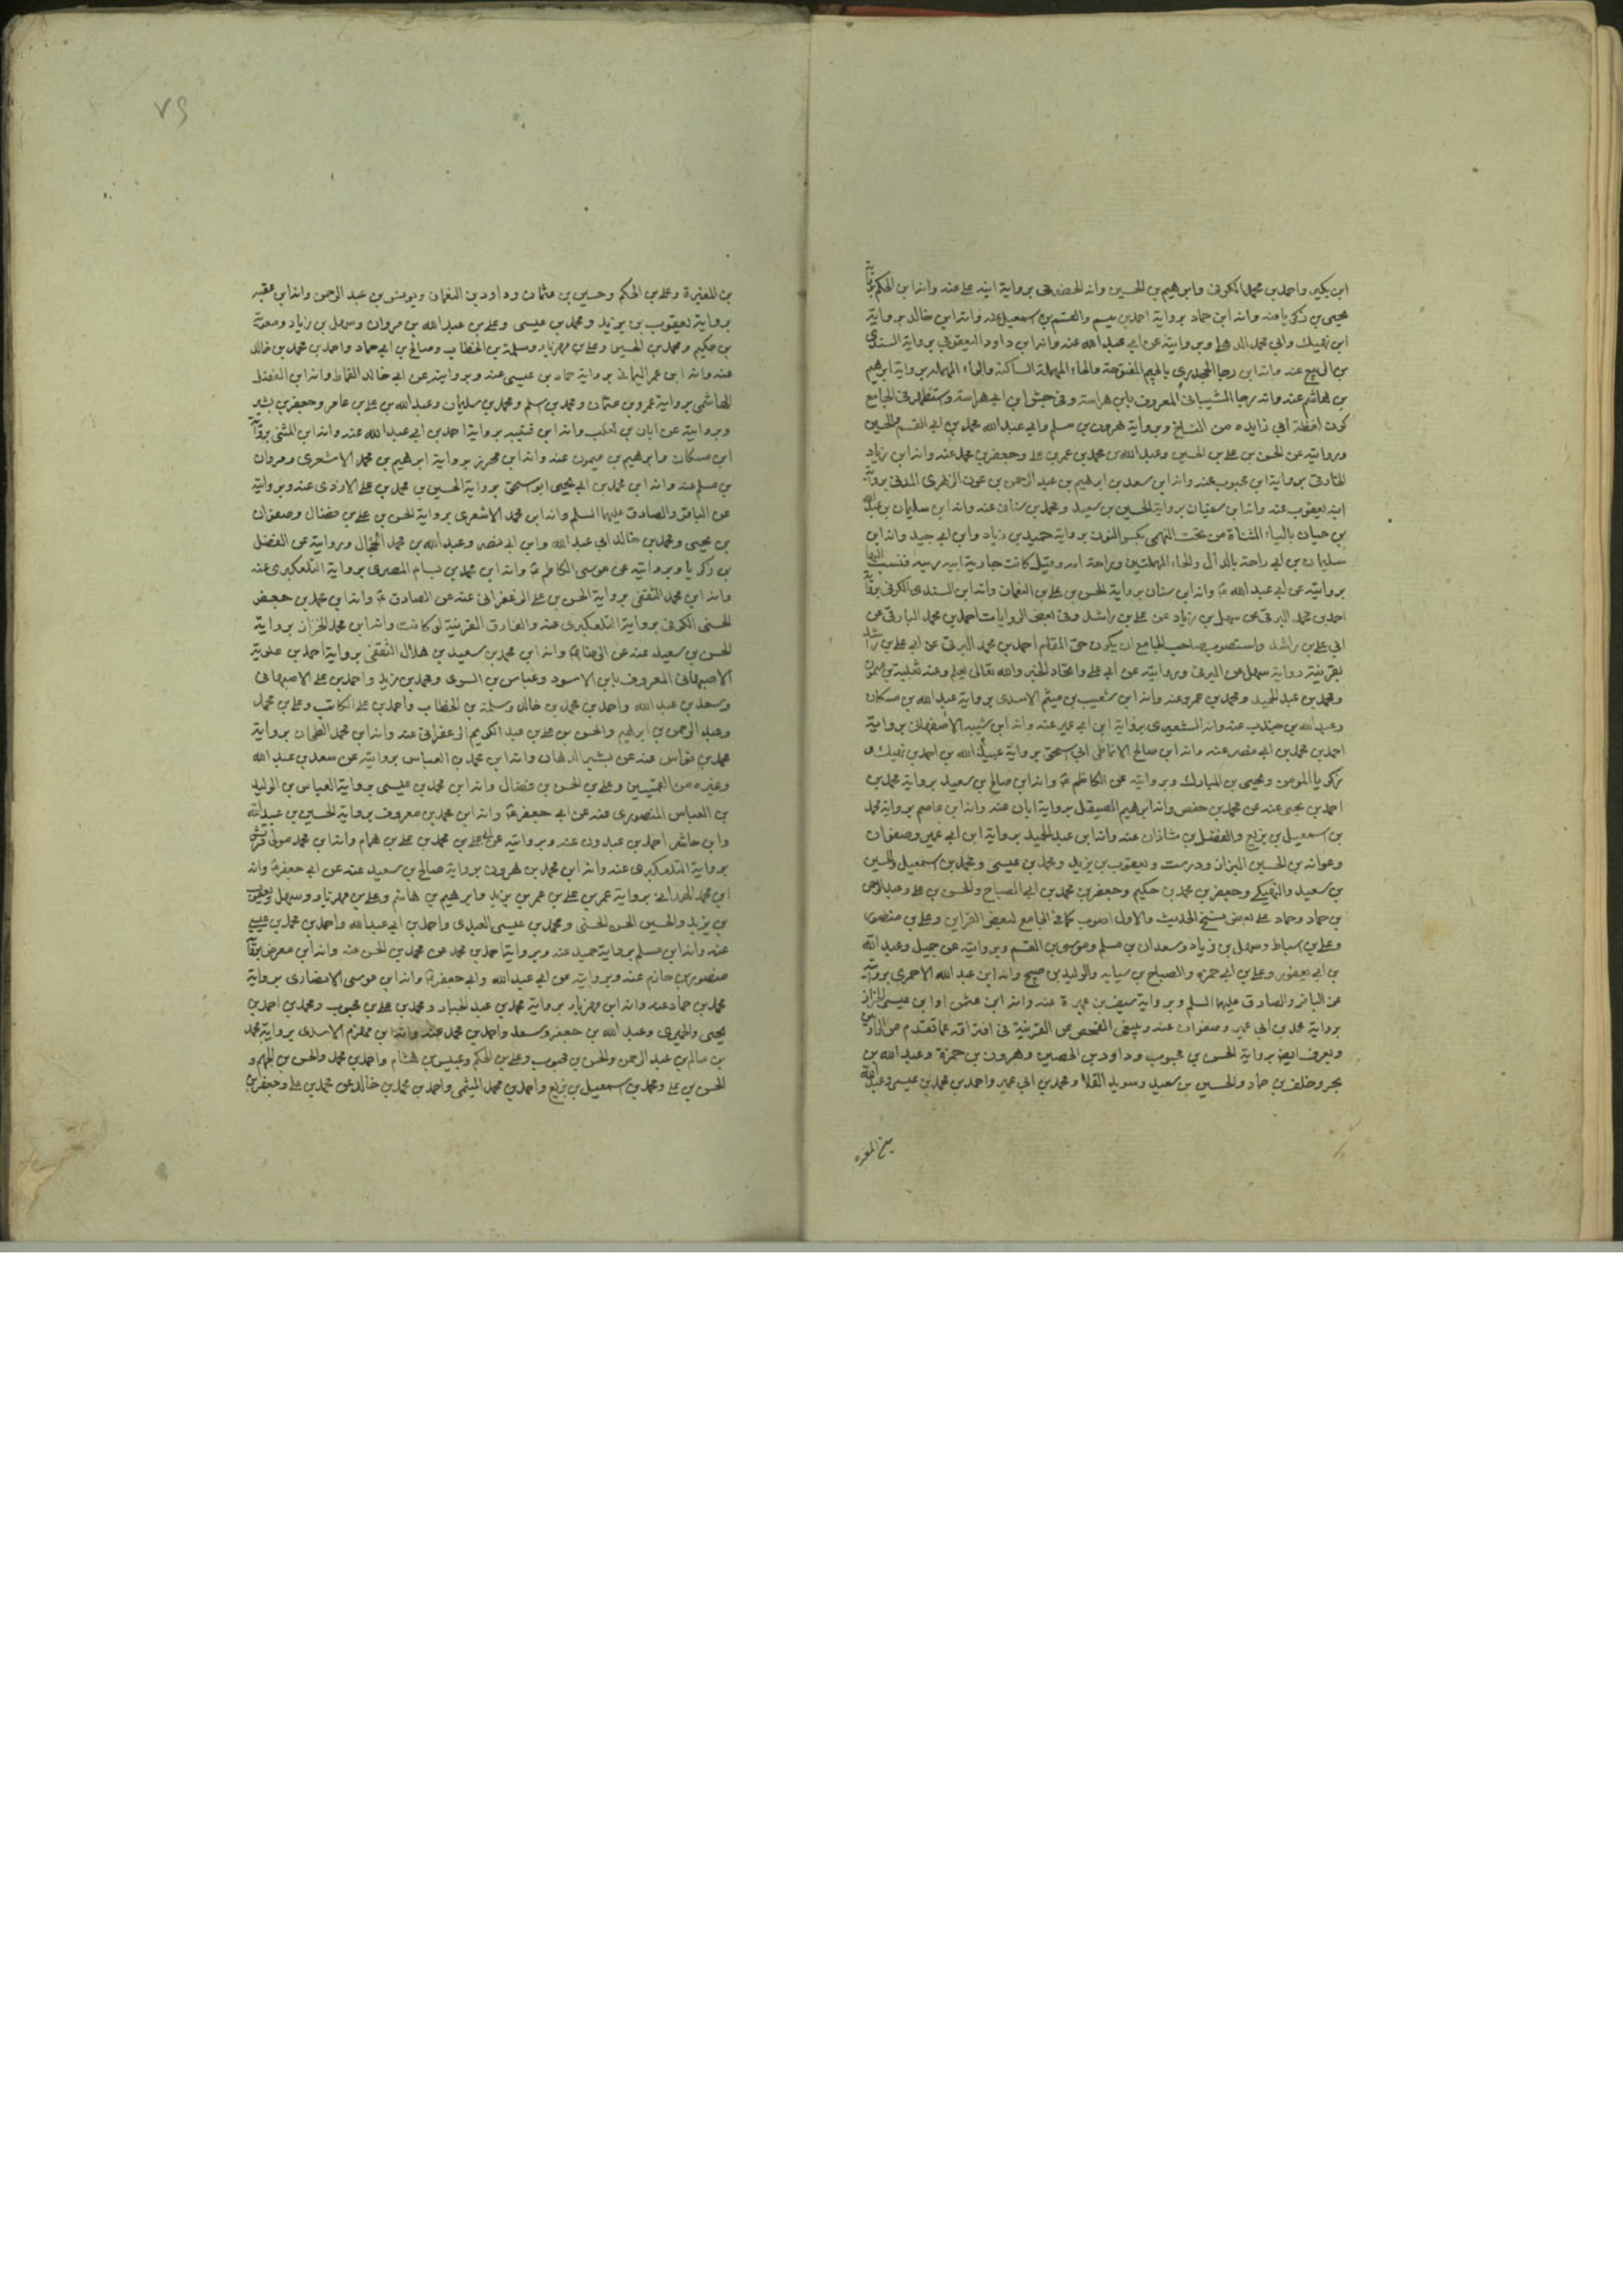 ابن بكير واحمد بن محمد الكوفى وابرهيم بن الحسين وانه الحضرمى برواية ابنه على عنه وانه ابن الحكم برواية
يحيى بن زكريا عنه وانه ابن حماد برواية احمد بن ميسم والقسم بن اسمعيل عنه وانه ابن خالد برواية
ابن نهيك وابى محمد الدهلى وبروايته عن ابى عبد الله عنه وانه ابن داود اليعقوبى برواية السندى
بن الربيع عنه وانه ابن رجا الجحدرى بالجيم المفتوحة والحاء المهملة الساكنة والراء المهملة برواية ابرهيم
بن هاشم عنه وانه رجا الشيبانى المعروف بابن هراسة وفى جش ابن ابى هراسة واستظهر فى الجامع
كون لفظة ابى زايده من النساخ وبرواية هرون بن مسلم وابى عبد الله محمد بن ابى القسم والحسين
وروايته عن الحسن بن على بن الحسين وعبد الله بن محمد بن عمر بن على وجعفر بن محمد عنه وانه ابن زياد
الخارقى برواية ابن محبوب عنه وانه ابن سعد بن ابرهيم بن عبد الرحمن بن عوف الزهرى المدنى برواية
ابنه يعقوب عنه وانه ابن سفيان برواية الحسين بن سعيد ومحمد بن سنان عنه وانه ابن سليمان بن عبد الله
بن حيان بالياء المثناة من تحت النهمى بكسر النون برواية حميد بن زياد وابن ابى جيد وانه ابن
سليمان بن ابى داحة بالدال والحاء المهملتين وداحة امه وقيل كانت جارية ابيه ربيه فنسب اليها
بروايته عن ابى عبد الله ع وانه ابن سنان برواية الحسن بن على بن النعمان وانه ابن السندى الكوفى برواية
احمد بن محمد البرقى عن سهل بن زياد عن على بن راشد وفى بعض الروايات احمد بن محمد البارقى عن
ابى على بن راشد واستصوب صاحب الجامع ان يكون حق المقام احمد بن محمد البرقى عن ابى على بن راشد
بقرينة رواية سهل عن البرقى وبروايته عن ابى على واتحاد الخبر والله تعالى يعلم وعنه ثعلبة بن ميمون
ومحمد بن عبد الحميد ومحمد بن عمرو عنه وانه ابن شعيب بن ميثم الاسدى برواية عبد الله بن مسكان
وعبد الله بن جندب عنه وانه الشعيرى برواية ابن ابى عمير عنه وانه ابن شيبه الاصفهانى برواية
احمد بن محمد بن ابى نصر عنه وانه ابن صالح الانماطى ابى اسحق برواية عبيد الله بن احمد بن نهيك و
زكريا المومن ويحيى بن المبارك وبروايته عن الكاظم ع وانه ابن صالح بن سعيد برواية محمد بن
احمد بن يحيى عنه عن محمد بن حفص وانه ابرهيم الصيقل برواية ابان عنه وانه ابن عاصم برواية محمد
بن اسمعيل بن بزيع والفضل بن شاذان عنه وانه ابن عبد الحميد برواية ابن ابى عمير وصفوان
وعوانه بن الحسين البزاز ودرست ويعقوب بن يزيد ومحمد بن عيسى ومحمد بن اسمعيل والحسين
بن سعيد والنهيكى وجعفر بن محمد بن حكيم وجعفر بن محمد بن ابى الصباح والحسن بن على وعبد الرحمن
بن حماد وحماد على بعض نسخ الحديث والاول اصوب كما فى الجامع لبعض القراين وعلى بن منصور
وعلى بن اسباط وسهل بن زياد وسعدان بن مسلم وموسى بن القسم وبروايته عن جميل وعبد الله
بن ابى يعفور وعلى بن ابى حمزه والصباح بن سيابه والوليد بن صبيح وانه ابن عبد الله الاحمرى بروايته
عن الباقر والصادق عليهما السلم وبرواية سيف بن عميرة عنه وانه ابن عثمن او ابن عيسى الخزاز
برواية محمد بن ابى عمير وصفوان عنه وينبغى الفحص عن القرينة فى افتراقه عما تقدم من
ويعرف ايضا برواية الحسن بن محبوب وداود بن الحصين وهرون بن حمزة وعبد الله بن
بحر وخلف بن حماد والحسين بن سعيد وسويد القلا ومحمد بن ابى عمير واحمد بن محمد بن عيسى وعبد الله
بن المغيرة
٧٩
بن المغيرة وعلى بن الحكم وحسين بن عثمان وداود بن النعمان ويونس بن عبد الرحمن وانه ابن عقبه
برواية يعقوب بن يزيد ومحمد بن عيسى وعلى بن عبد الله بن مروان وسهل بن زياد ومعوية
بن حكيم ومحمد بن الحسين وعلى بن مهزيار وسلمة بن الخطاب وصالح بن ابى حماد واحمد بن محمد بن خالد
عنه وانه ابن عمر اليمانى برواية حماد بن عيسى عنه وبروايته عن ابى خالد القماط وانه ابن الفضل
الهاشمى برواية عمرو بن عثمان ومحمد بن اسلم ومحمد بن سليمان وعبد الله بن على بن عامر وجعفر بن بشير
وبروايته عن ابان بن تغلب وانه ابن قتيبه برواية احمد بن ابى عبد الله عنه وانه ابن المثنى برواية
ابن مسكان وابرهيم بن ميمون عنه وانه ابن محرز برواية ابرهيم بن محمد الاشعرى ومروان
بن مسلم عنه وانه ابن محمد بن ابى يحيى ابو اسحق برواية الحسين بن محمد بن على الازدى عنه وبروايته
عن الباقر والصادق عليهما السلم وانه ابن محمد الاشعرى برواية الحسن بن على بن فضال وصفوان
بن يحيى ومحمد بن خالد ابى عبد الله وابن ابى نصر وعبد الله بن محمد الحجال وبروايته عن الفضل
بن زكريا وبروايته عن موسى الكاظم ع وانه ابن محمد بن بسام المصرى برواية التلعكبرى عنه
وانه ابن محمد الثقفى برواية الحسن بن على الزعفرانى عنه عن الصادق ع وانه ابن محمد بن جعفر
الحسنى الكوفى برواية التلعكبرى عنه والفارق القرينة لو كانت وانه ابن محمد الخزاز برواية
الحسن بن سعيد عنه عن الرضا ع وانه ابن محمد بن سعيد بن هلال الثقفى برواية احمد بن علوية
الاصبهانى المعروف بابن الاسود وعباس بن السرى ومحمد بن زيد واحمد بن على الاصبهانى
وسعد بن عبد الله واحمد بن محمد بن خالد وسلمة بن الخطاب واحمد بن على الكاتب وعلى بن محمد
وعبد الرحمن بن ابرهيم والحسن بن على بن عبد الكريم الزعفرانى عنه وانه ابن محمد الطحان برواية
محمد بن نواس عنه عن بشير الدهان وانه ابن محمد بن العباس بروايته عن سعد بن عبد الله
وغيره من القميين وعلى بن الحسن بن فضال وانه ابن محمد بن عيسى برواية العباس بن الوليد
بن العباس المنصورى عنه عن ابى جعفر ع وانه ابن محمد بن معروف برواية الحسين بن عبيد الله
وابن حاشر احمد بن عبدون عنه وبروايته عن ابى على بن محمد بن على بن همام وانه ابن محمد مولى قريش
برواية التلعكبرى عنه وانه ابن محمد بن هرون برواية صالح بن سعيد عنه عن ابى جعفر ع وانه
ابن محمد الهمدانى برواية عمر بن على بن عمر بن يزيد وابرهيم بن هاشم وعلى بن مهزيار وسهل ويعقوب
بن يزيد والحسين الحسن الحسنى ومحمد بن عيسى العبيدى واحمد بن ابى عبد الله واحمد بن محمد بن عيسى
عنه وانه ابن مسلم برواية حميد عنه وبرواية احمد بن محمد عن محمد بن الحسن عنه وانه ابن معرض برواية
منصور بن حازم عنه وبروايته عن ابى عبد الله وابى جعفر ع وانه ابن موسى الانصارى برواية
محمد بن حماد عنه وانه ابن مهزيار برواية محمد بن عبد الجبار ومحمد بن على بن محبوب ومحمد بن احمد بن
يحيى والحميرى وعبد الله بن جعفر وسعد واحمد بن محمد عنه وانه ابن مهزم الاسدى برواية محمد
بن سالم بن عبد الرحمن والحسن بن محبوب وعلى بن الحكم وعبيس بن هشام واحمد بن محمد والحسن بن الجهم و
الحسن بن على ومحمد بن اسمعيل بن بزيع واحمد بن محمد الميثمى واحمد بن محمد بن خالد عن محمد بن على وجعفر بن